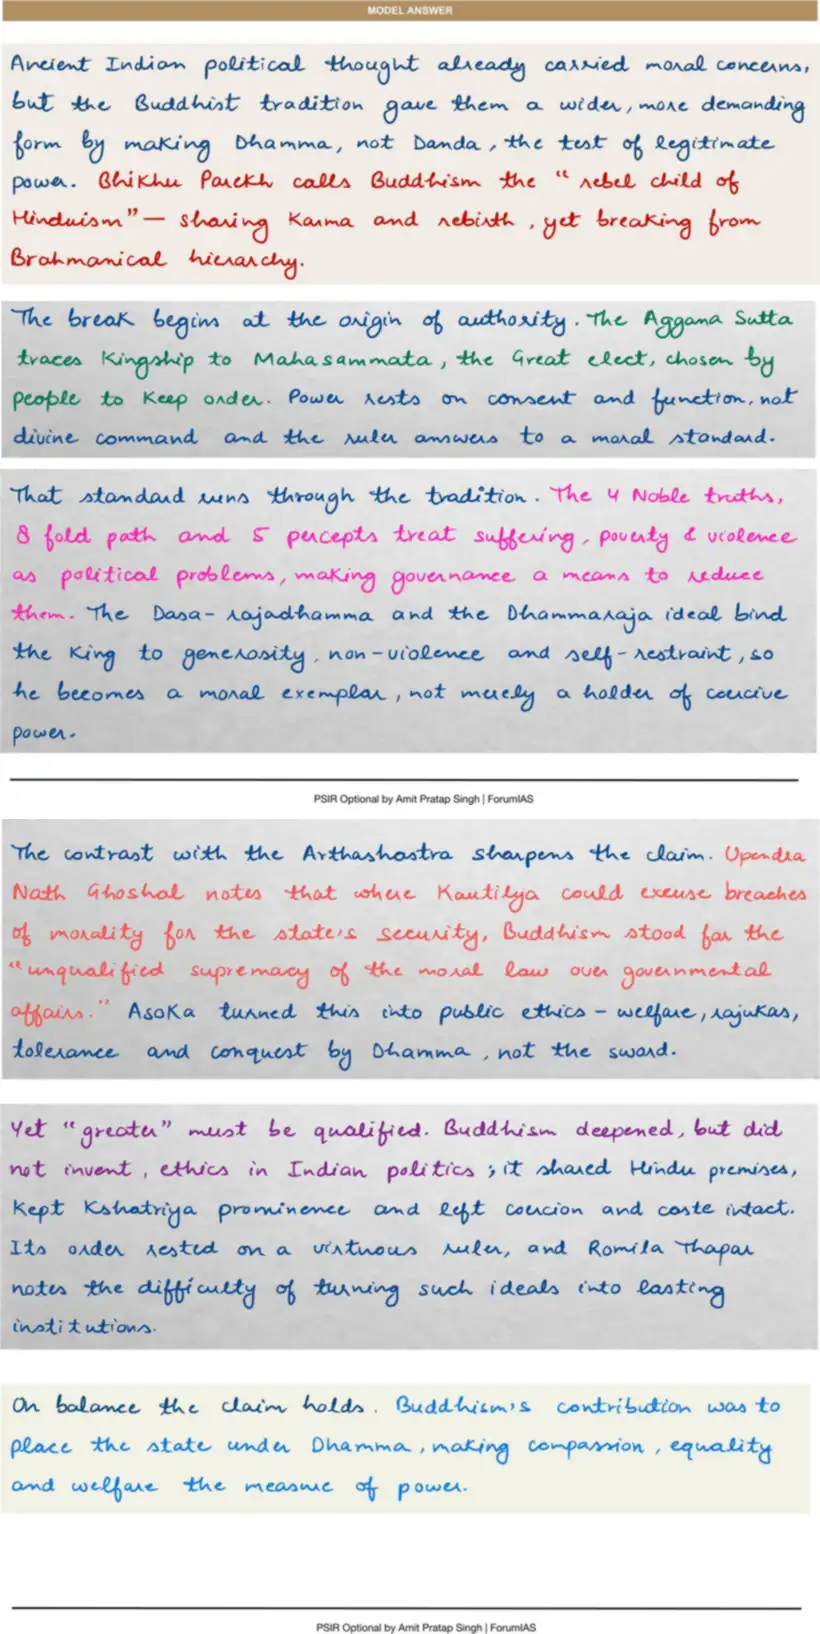 MODEL ANSWER
Ancient Indian political thought already carried moral concerns,
but the Buddhist tradition gave them a wider, more demanding
form by making Dhamma, not Danda, the test of legitimate
power. Bhikhu Parekh calls Buddhism the "rebel child of
Hinduism" — sharing Karma and rebirth, yet breaking from
Brahmanical hierarchy.
The break begins at the origin of authority. The Aggana Sutta
traces Kingship to Mahasammata, the Great elect, chosen by
people to Keep order. Power rests on consent and function, not
divine command and the ruler answers to a moral standard.
That standard runs through the tradition. The 4 Noble truths,
8 fold path and 5 percepts treat suffering, poverty & violence
as political problems, making governance a means to reduce
them. The Dasa-rajadhamma and the Dhammaraja ideal bind
the King to generosity, non-violence and self-restraint, so
he becomes a moral exemplar, not merely a holder of coercive
power.
PSIR Optional by Amit Pratap Singh | ForumIAS
The contrast with the Arthashastra sharpens the claim. Upendra
Nath Ghoshal notes that where Kautilya could excuse breaches
of morality for the state's security, Buddhism stood for the
"unqualified supremacy of the moral law over governmental
affairs." Asoka turned this into public ethics - welfare, rajukas,
tolerance and conquest by Dhamma, not the sword.
Yet "greater" must be qualified. Buddhism deepened, but did
not invent, ethics in Indian politics ; it shared Hindu premises,
Kept Kshatriya prominence and left coercion and caste intact.
Its order rested on a virtuous ruler, and Romila Thapar
notes the difficulty of turning such ideals into lasting
institutions.
On balance the claim holds. Buddhism's contribution was to
place the state under Dhamma, making compassion, equality
and welfare the measure of power.
PSIR Optional by Amit Pratap Singh | ForumIAS